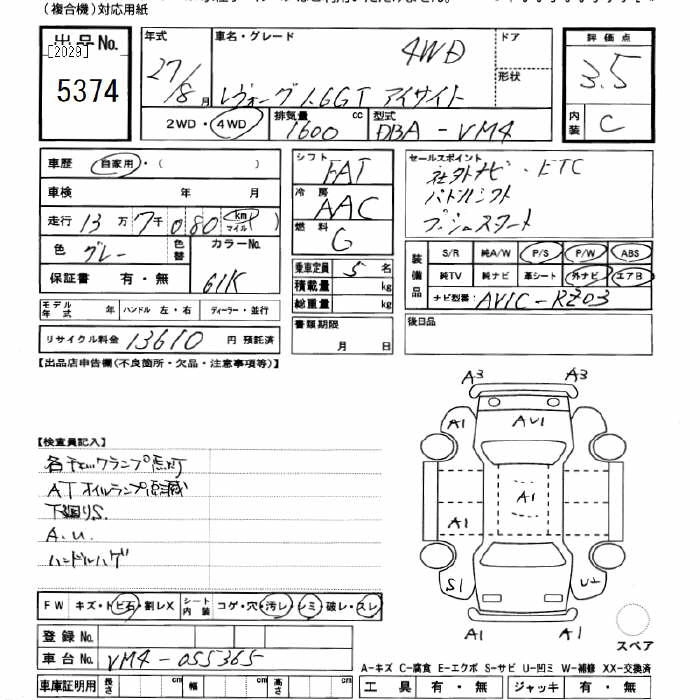 （複合機）対応用紙
出品No.
[2029]
5374
年式
27/8月
車名・グレード
4WD
レヴォーグ1.6GT アイサイト
ドア
形状
2WD・4WD
排気量
1600 cc
型式
DBA-VM4
評価点
3.5
内装
C
車歴 自家用・( )
車検 年 月
走行 13万7千080 km マイル
色 グレー 色替 カラーNo. 61K
保証書 有・無
モデル年式 年 ハンドル 左・右 ディーラー・並行
リサイクル料金 13610 円 預託済
シフト FAT
冷房 AAC
燃料 G
乗車定員 5 名
積載量 kg
総重量 kg
書類期限
月 日
セールスポイント
社外ナビ・ETC
パドルシフト
プッシュスタート
装備品
S/R 純A/W P/S P/W ABS
純TV 純ナビ 革シート 外ナビ エアB
ナビ型番: AVIC-RZ03
後日品
【出品店申告欄(不良箇所・欠品・注意事項等)】
【検査員記入】
各チェックランプ点灯
ATオイルランプ点滅
下廻りS.
A.U.
ハンドルハゲ
A3 A3
A1 AU1
A1
A1
S1
A1 A1
スペア
FW キズ・トビ石・割レX シート内装 コゲ・穴・汚レ・シミ・破レ・スレ
登録No.
車台No. VM4-055365
車庫証明用 長さ cm 幅 cm 高さ cm
A-キズ C-腐食 E-エクボ S-サビ U-凹ミ W-補修 XX-交換済
工具 有・無 ジャッキ 有・無